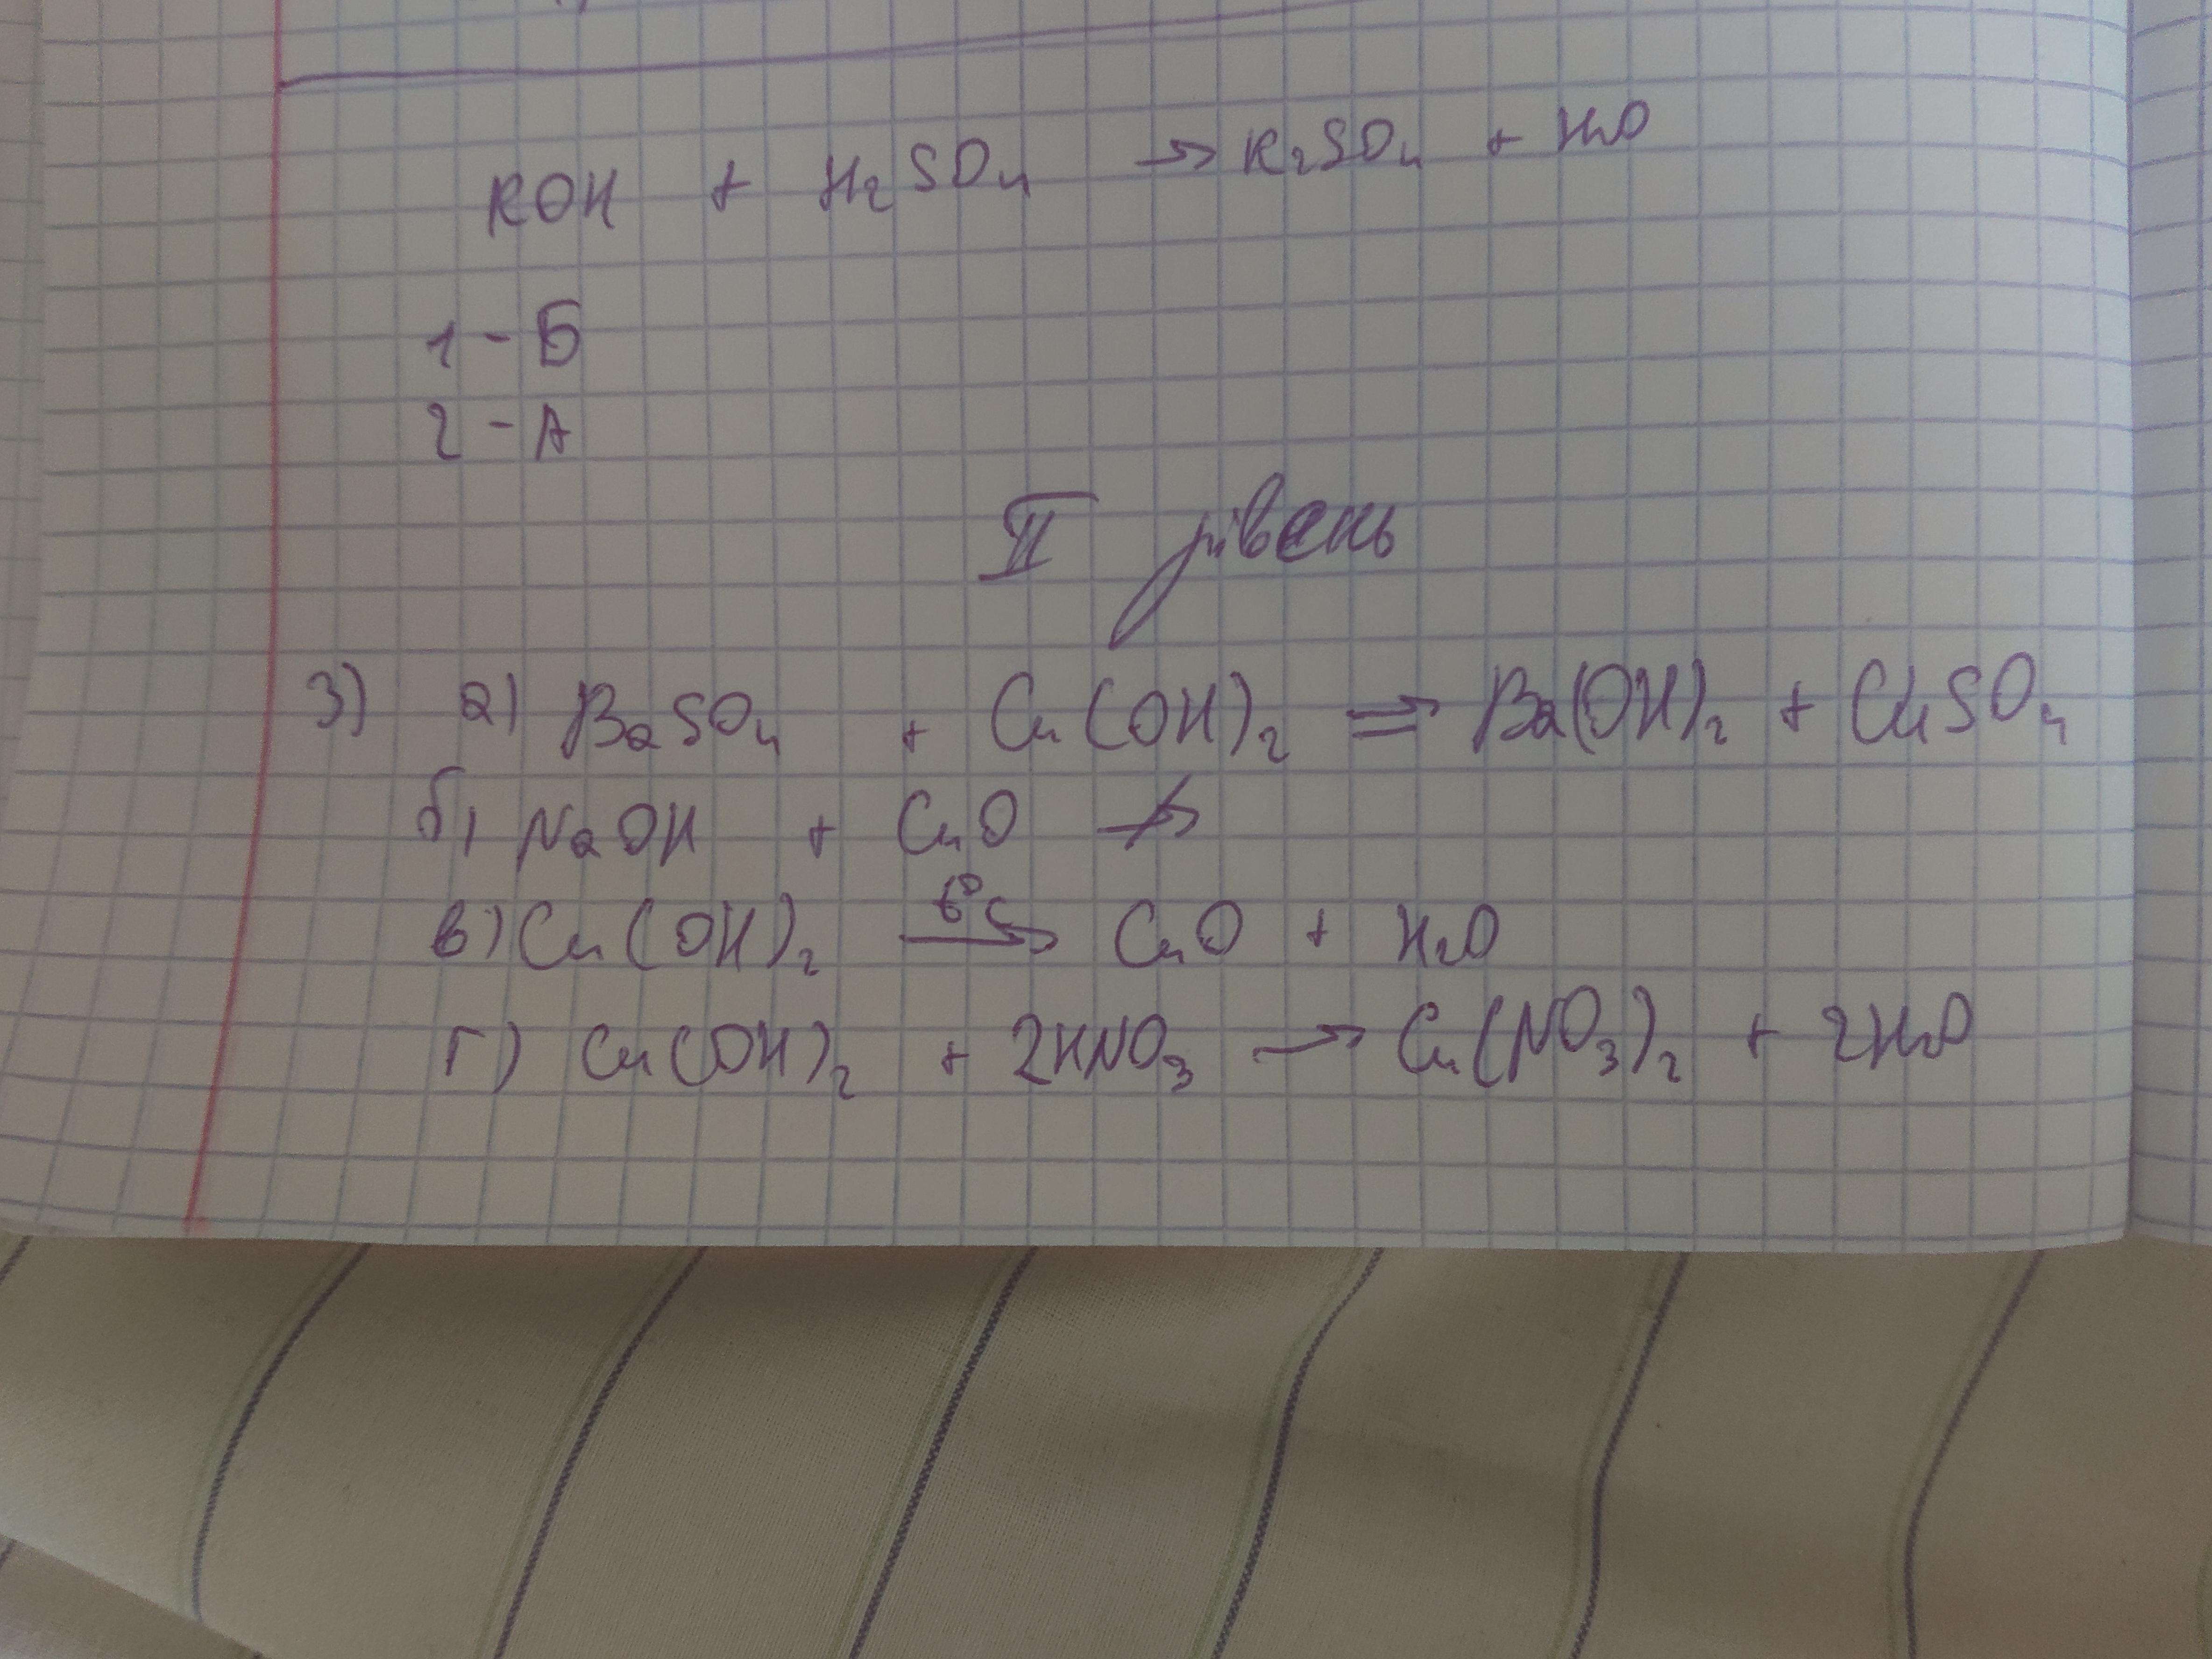 KOH + H₂SO₄ → K₂SO₄ + H₂O
1 - Б
2 - А
II рівень
3) а) BaSO₄ + Cu(OH)₂ ⇒ Ba(OH)₂ + CuSO₄
б) NaOH + CuO ↛
в) Cu(OH)₂ —t°C→ CuO + H₂O
г) Cu(OH)₂ + 2HNO₃ → Cu(NO₃)₂ + 2H₂O